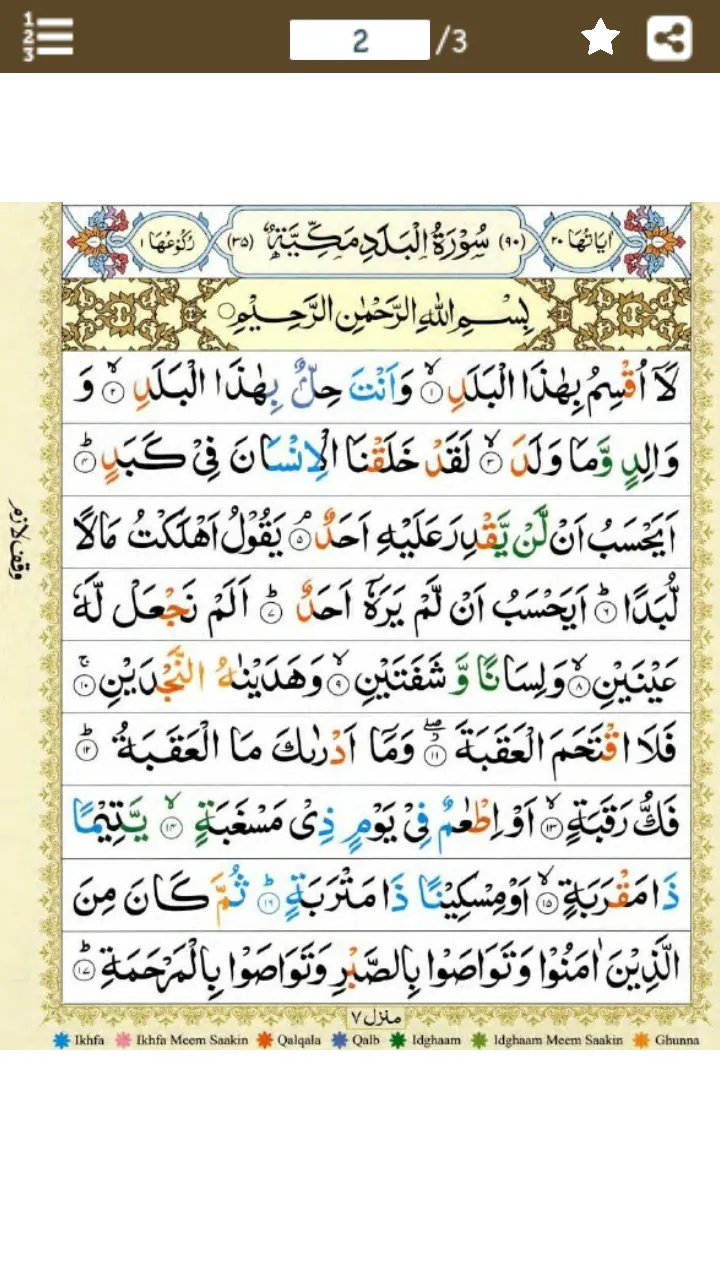 1
2
3
2 /3
اٰيَاتُهَا ٢٠ (٩٠) سُوْرَةُ الْبَلَدِ مَكِّيَّةٌ (٣٥) رُكُوْعُهَا ١
بِسْمِ اللّٰهِ الرَّحْمٰنِ الرَّحِيْمِ ○
لَاۤ اُقْسِمُ بِهٰذَا الْبَلَدِ ۙ﴿١﴾ وَاَنْتَ حِلٌّۢ بِهٰذَا الْبَلَدِ ۙ﴿٢﴾ وَ
وَالِدٍ وَّمَا وَلَدَ ۙ﴿٣﴾ لَقَدْ خَلَقْنَا الْاِنْسَانَ فِيْ كَبَدٍ ؕ﴿٤﴾
اَيَحْسَبُ اَنْ لَّنْ يَّقْدِرَ عَلَيْهِ اَحَدٌ ۘ﴿٥﴾ يَقُوْلُ اَهْلَكْتُ مَالًا
لُّبَدًا ؕ﴿٦﴾ اَيَحْسَبُ اَنْ لَّمْ يَرَهٗۤ اَحَدٌ ؕ﴿٧﴾ اَلَمْ نَجْعَلْ لَّهٗ
عَيْنَيْنِ ۙ﴿٨﴾ وَلِسَانًا وَّشَفَتَيْنِ ۙ﴿٩﴾ وَهَدَيْنٰهُ النَّجْدَيْنِ ۚ﴿١٠﴾
فَلَا اقْتَحَمَ الْعَقَبَةَ ۖ﴿١١﴾ وَمَاۤ اَدْرٰىكَ مَا الْعَقَبَةُ ؕ﴿١٢﴾
فَكُّ رَقَبَةٍ ۙ﴿١٣﴾ اَوْ اِطْعٰمٌ فِيْ يَوْمٍ ذِيْ مَسْغَبَةٍ ۙ﴿١٤﴾ يَّتِيْمًا
ذَا مَقْرَبَةٍ ۙ﴿١٥﴾ اَوْ مِسْكِيْنًا ذَا مَتْرَبَةٍ ؕ﴿١٦﴾ ثُمَّ كَانَ مِنَ
الَّذِيْنَ اٰمَنُوْا وَتَوَاصَوْا بِالصَّبْرِ وَتَوَاصَوْا بِالْمَرْحَمَةِ ؕ﴿١٧﴾
وقف لازم
منزل ٧
Ikhfa Ikhfa Meem Saakin Qalqala Qalb Idghaam Idghaam Meem Saakin Ghunna